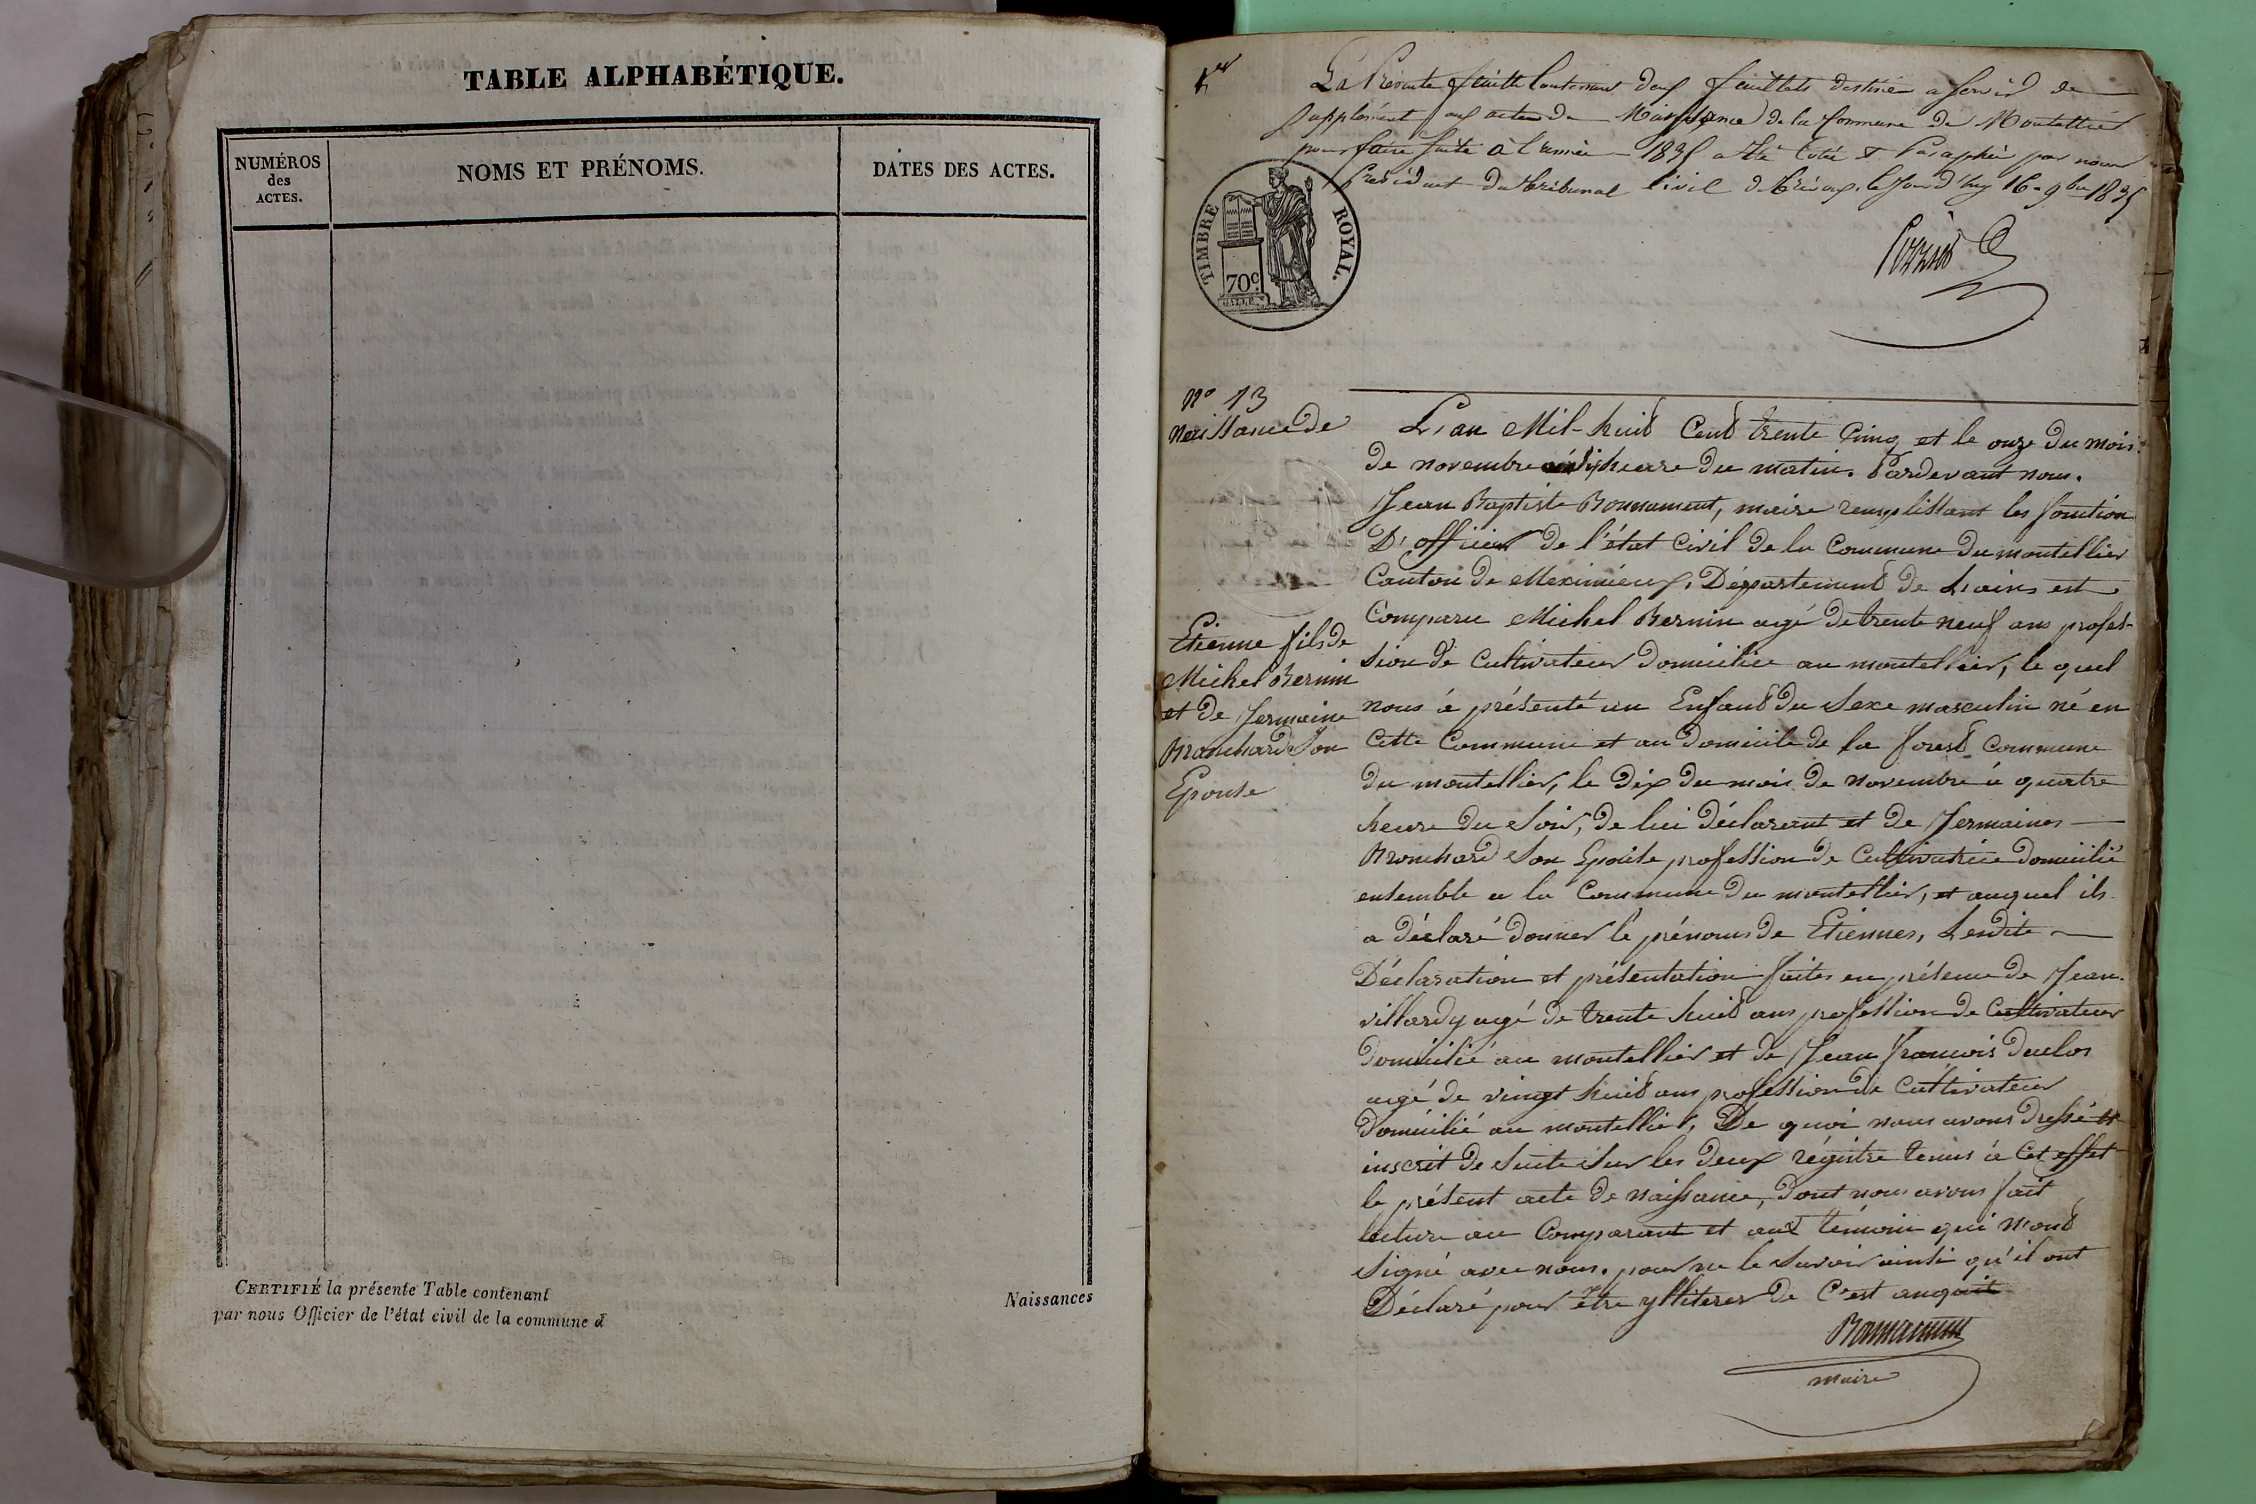 TABLE ALPHABÉTIQUE.
NUMÉROS
des
ACTES.
NOMS ET PRÉNOMS.
DATES DES ACTES.
CERTIFIÉ la présente Table contenant
Naissances
par nous Officier de l'état civil de la commune d
1er
La Présente feuille Contenant deux feuillets destinée a servir de
supplément aux actes de Naissance de la Commune de Montellier
pour faire suite à l'année 1835 a été Cotée et Paraphée par nous
Président du tribunal Civil de trévoux, le jourd'huy 16 9bre 1835
TIMBRE ROYAL.
70c.
No 13
Naissance de
Etienne fils de
Michel Bernin
et de Jermaine
Branchard Son
Epouse
L'an Mil-huit Cent trente Cinq et le onze du mois
de novembre à dix heure du matin. Pardevant nous.
Jean Baptiste Bonnament, maire remplissant les fonction
D'officier de l'état Civil de la Commune du montellier
Canton de Meximieux, Département de L'ains est
Comparu Michel Bernin agé de trente neuf ans profes-
sion de Cultivateur Domicilié au montellier, le quel
nous à présenté un Enfant du Sexe masculin né en
Cette Commune et au Domicile de la forest Commune
du montellier, le Dix du mois de novembre à quatre
heure du Soir, de lui déclarant et de Jermaines
Bronchard Son Epouse profession de Cultivatrice Domicilié
ensemble a la Commune du montellier, et auquel ils
a déclaré donner le prénoms de Etiennes, Lesdite
Déclaration et présentation faites en présence de Jean
villardy agé de trente huit ans profession de Cultivateur
Domicilié au montellier et de Jean françois duclos
agé de vingt huit ans profession de Cultivateur
Domicilié au montellier, De quoi nous avons dressé et
inscrit de Suite Sur les deux régistre tenus à Cet effet
le présent acte de naissance, dont nous avons fait
lecture au Comparant et aux témoin qui n'ont
Signé avec nous. pour ne le Savoir ainsi qu'il ont
Déclaré pour être ylliterer de C'est
Bonnament
maire